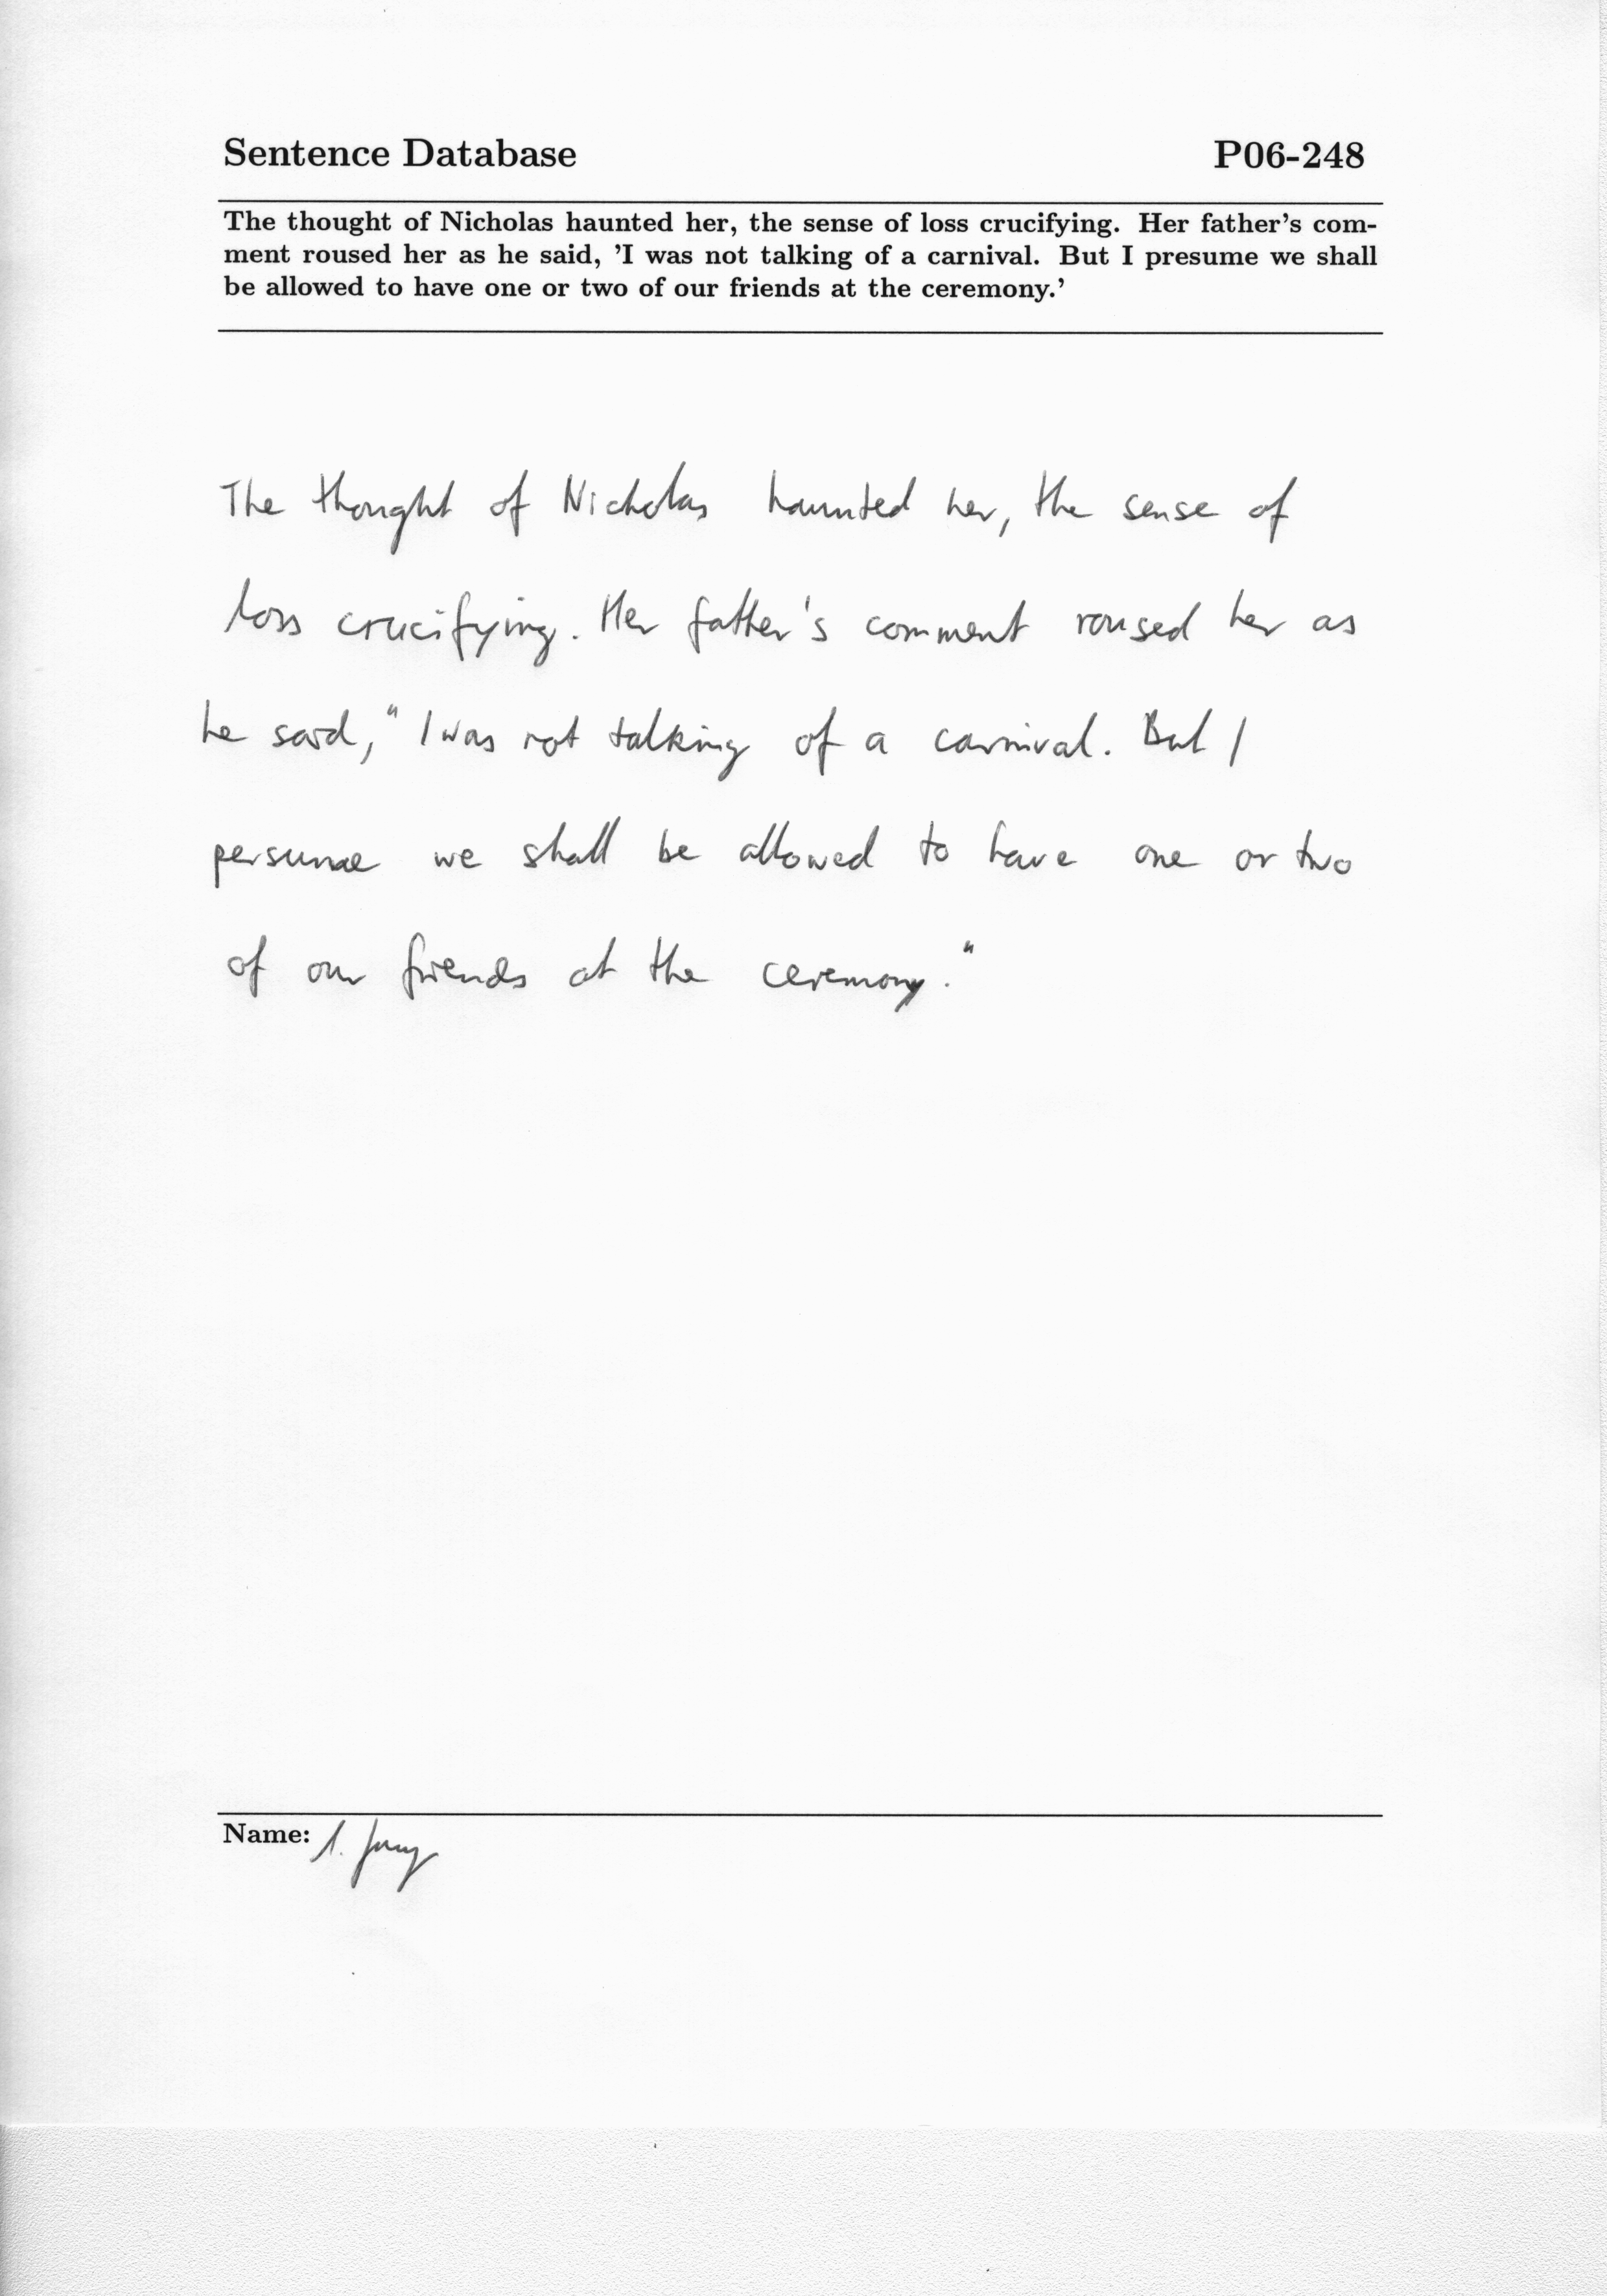 Sentence Database P06-248
The thought of Nicholas haunted her, the sense of loss crucifying. Her father's com-
ment roused her as he said, 'I was not talking of a carnival. But I presume we shall
be allowed to have one or two of our friends at the ceremony.'
The thought of Nicholas haunted her, the sense of
loss crucifying. Her father's comment roused her as
he said, "I was not talking of a carnival. But I
persume we shall be allowed to have one or two
of our friends at the ceremony."
Name: